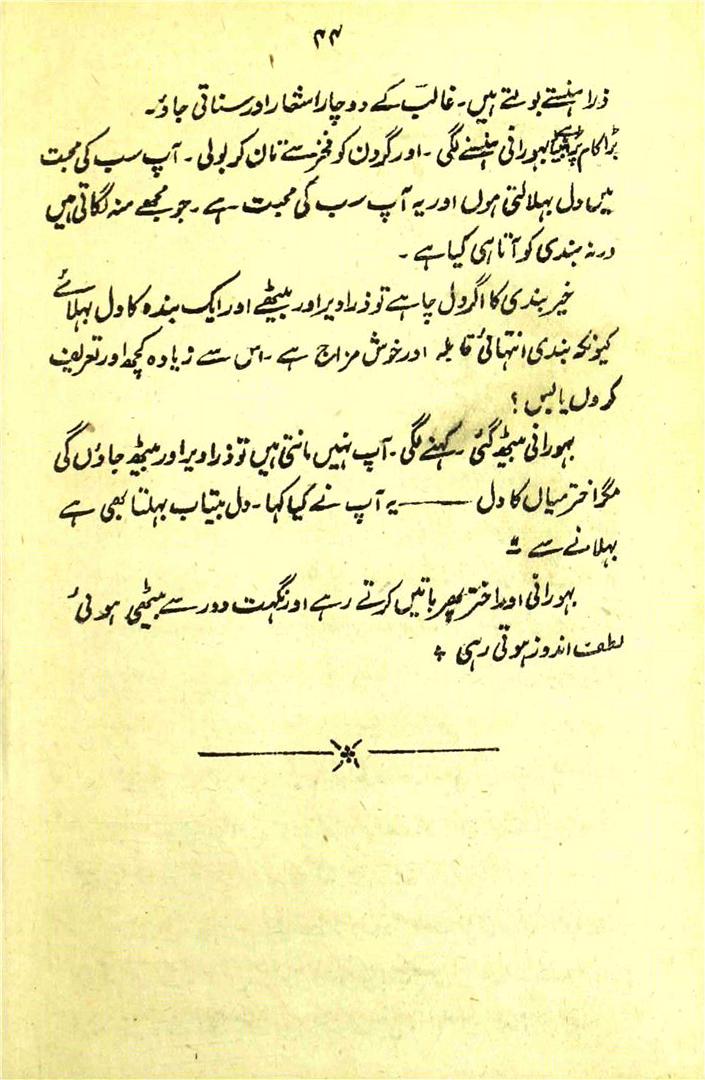 ۴۴
ذرا ہنستے بولتے ہیں۔ غالبؔ کے دو چار اشعار اور سناتی جاؤ۔
بڑا کام پڑا بہورانی ہنسنے لگی۔ اور گردن کو فخر سے تان کر بولی۔ آپ سب کی محبت
میں دل بہلا لیتی ہوں اور یہ آپ سب کی محبت ہے۔ جو مجھے منہ لگاتی ہیں
ورنہ بندی کو آتا ہی کیا ہے۔
خیر بندی کا اگر دل چاہے تو ذرا دیر اور بیٹھے اور ایک بندہ کا دل بہلائے
کیونکہ بندی انتہائی قابلہ اور خوش مزاج ہے۔ اس سے زیادہ کچھ اور تعریف
کروں یا بس؟
بہورانی بیٹھ گئی۔ کہنے لگی۔ آپ نہیں مانتی ہیں تو ذرا دیر اور بیٹھ جاؤں گی
مگر اختر میاں کا دل ——— یہ آپ نے کیا کہا۔ دل بیتاب بہلتا بھی ہے
بہلانے سے "
بہورانی اور اختر پھر باتیں کرتے رہے اور نگہت دور سے بیٹھی ہوئی
لطف اندوز ہوتی رہی ۔